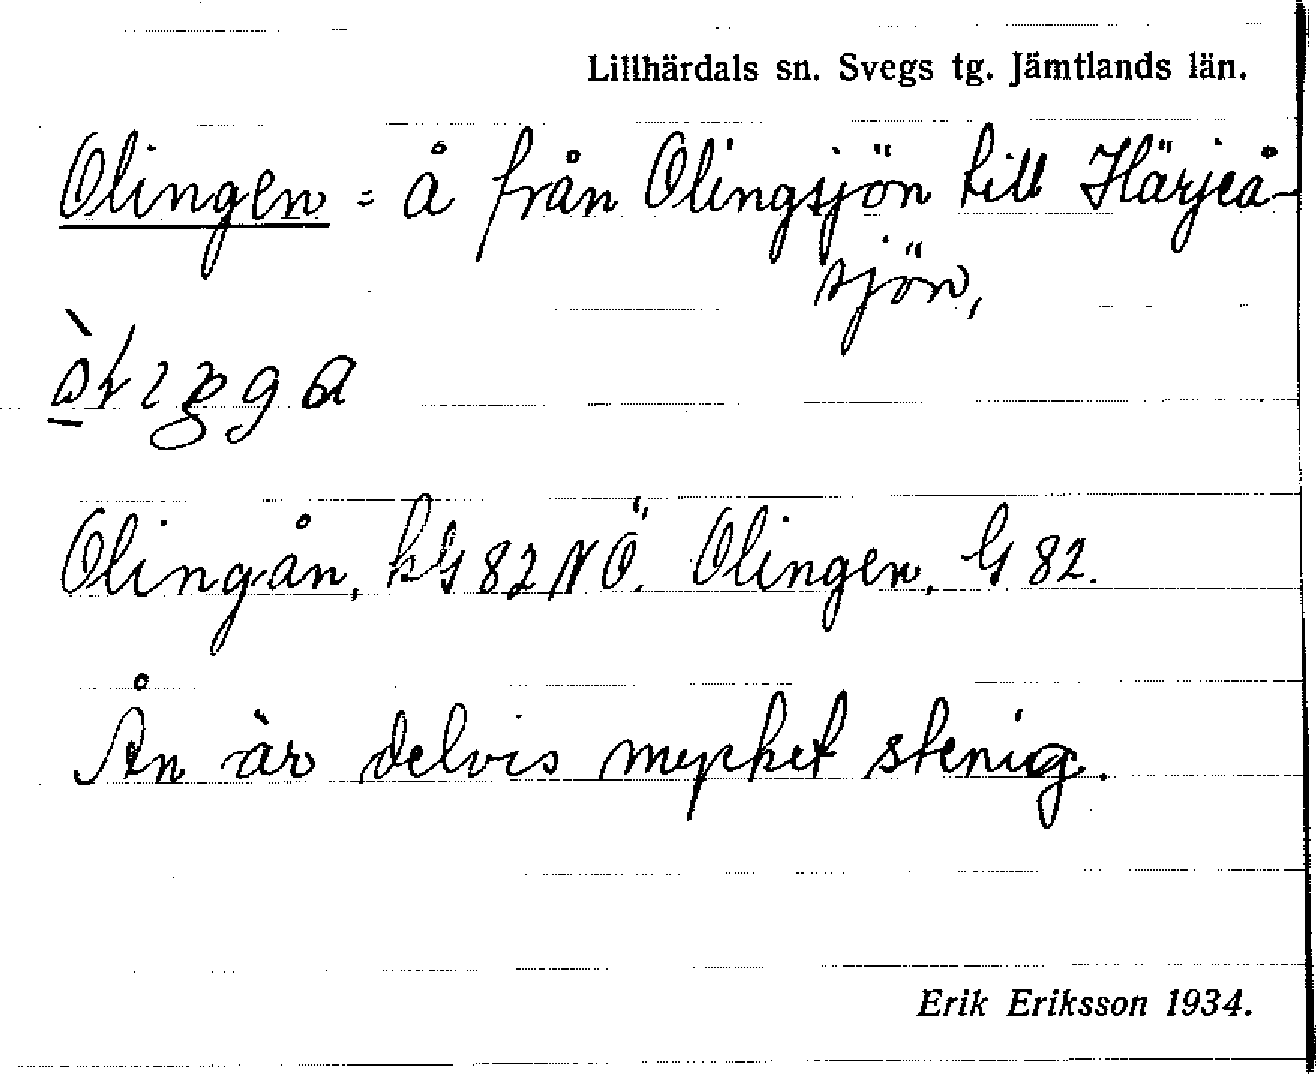 Lillhärdals sn. Svegs tg. Jämtlands län.
Olingen = å från Olingsjön till Härjeå-
sjön,
Olingån, kG 82 NÖ. Olingen, G 82.
Ån är delvis mycket stenig.
Erik Eriksson 1934.